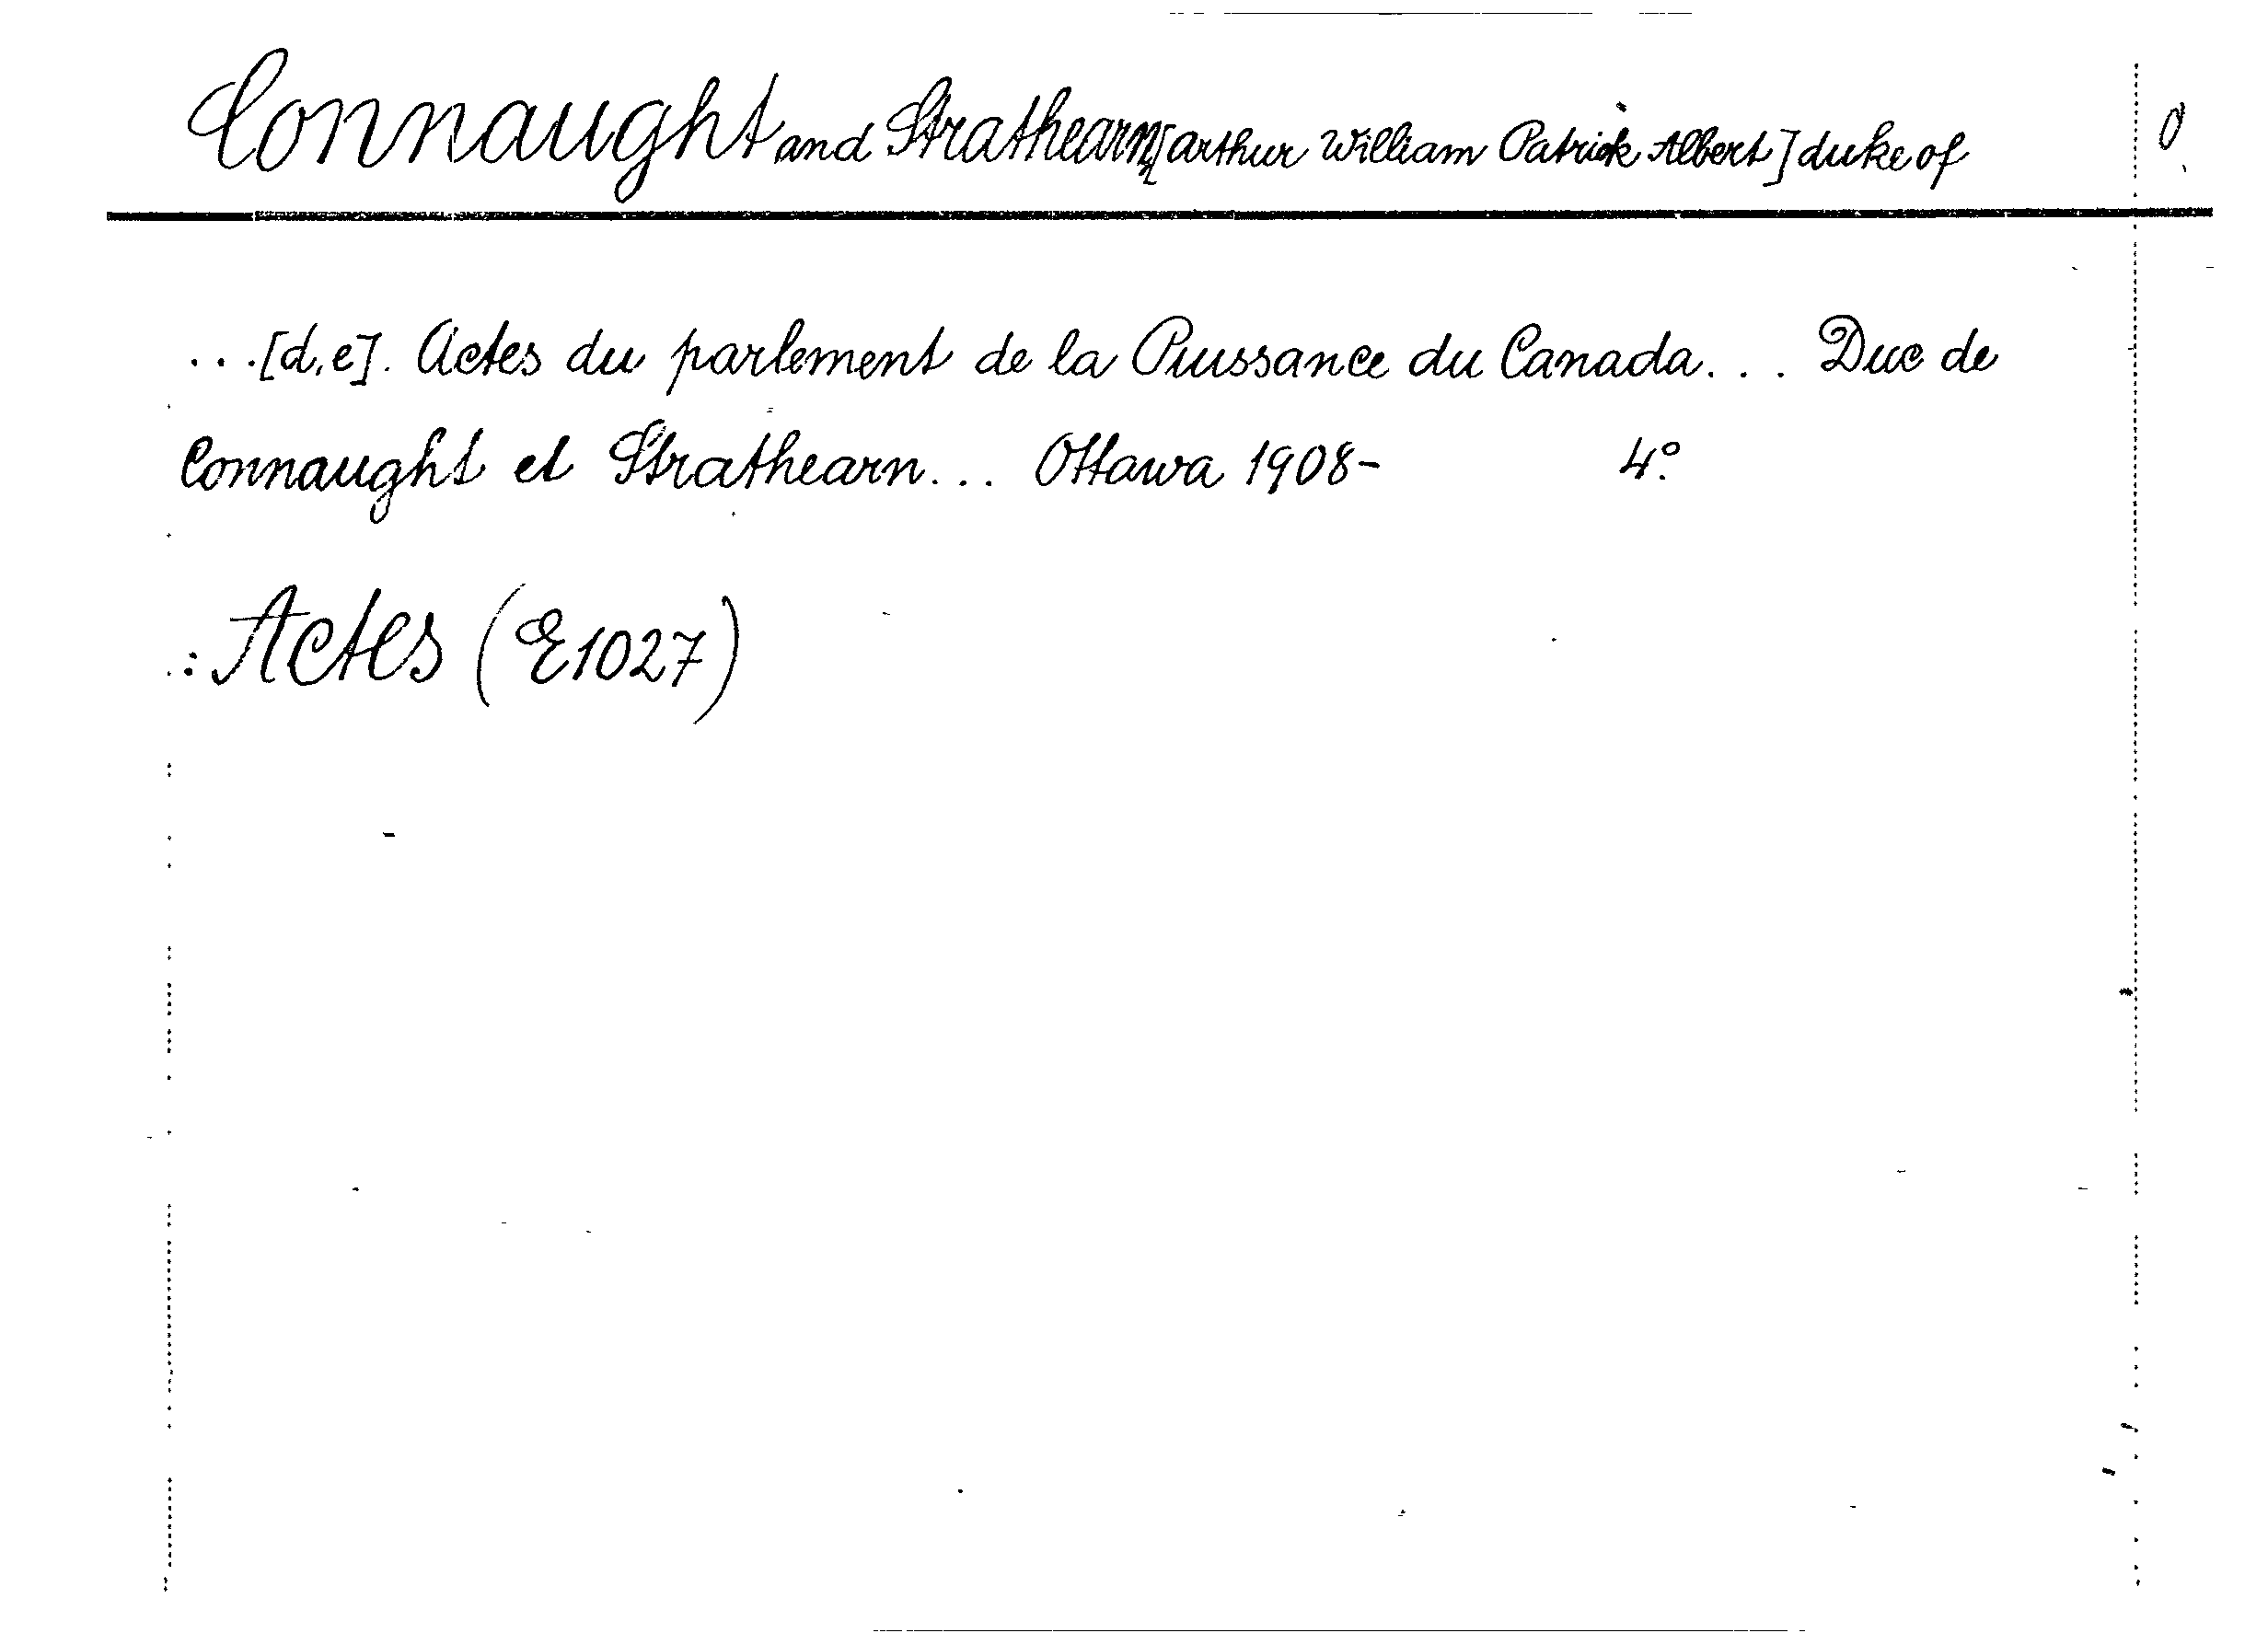 Connaught and Strathearn [Arthur William Patrick Albert] duke of 0
...[d,e]. Actes du parlement de la Puissance du Canada... Duc de
Connaught et Strathearn... Ottawa 1908- 4º.
: Actes (E1027)